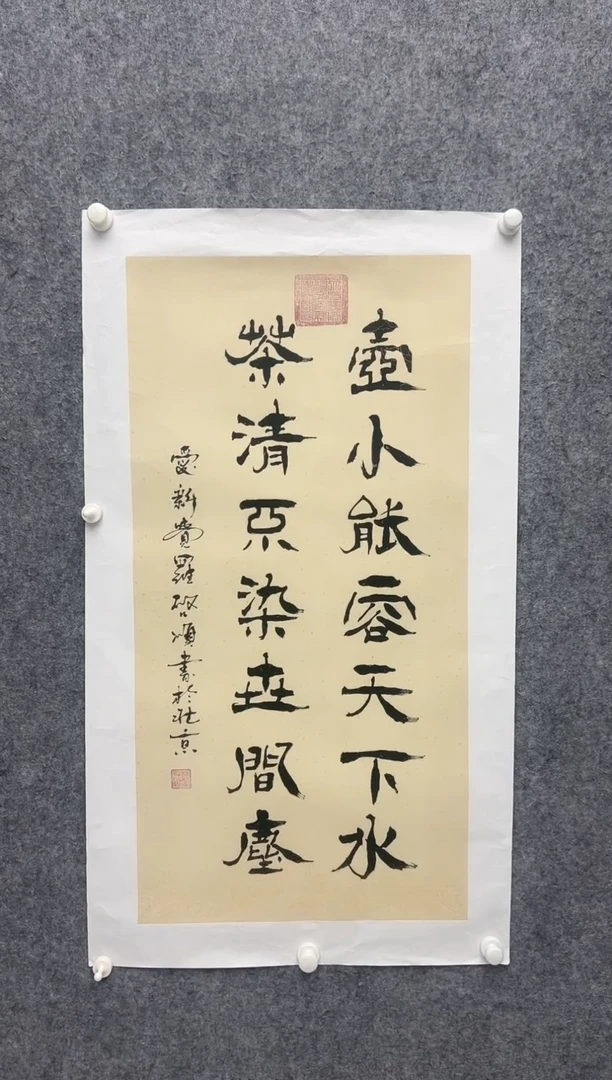 壺小能容天下水
茶清不染世間塵
愛新覺羅啓順書於北京